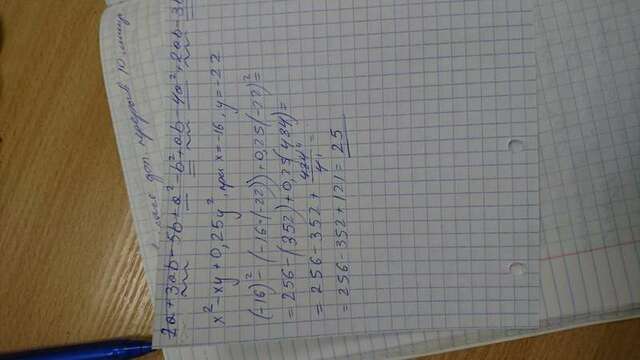 доп. 10 минут
2a+3ab-5b+a²-b²+ab-4a²+2ab-3b
x²-xy+0,25y², при x=-16, y=-22
(-16)²-(-16·(-22))+0,25(-22)²=
=256-(352)+0,25(484)=
=256-352+484/4=
=256-352+121=25